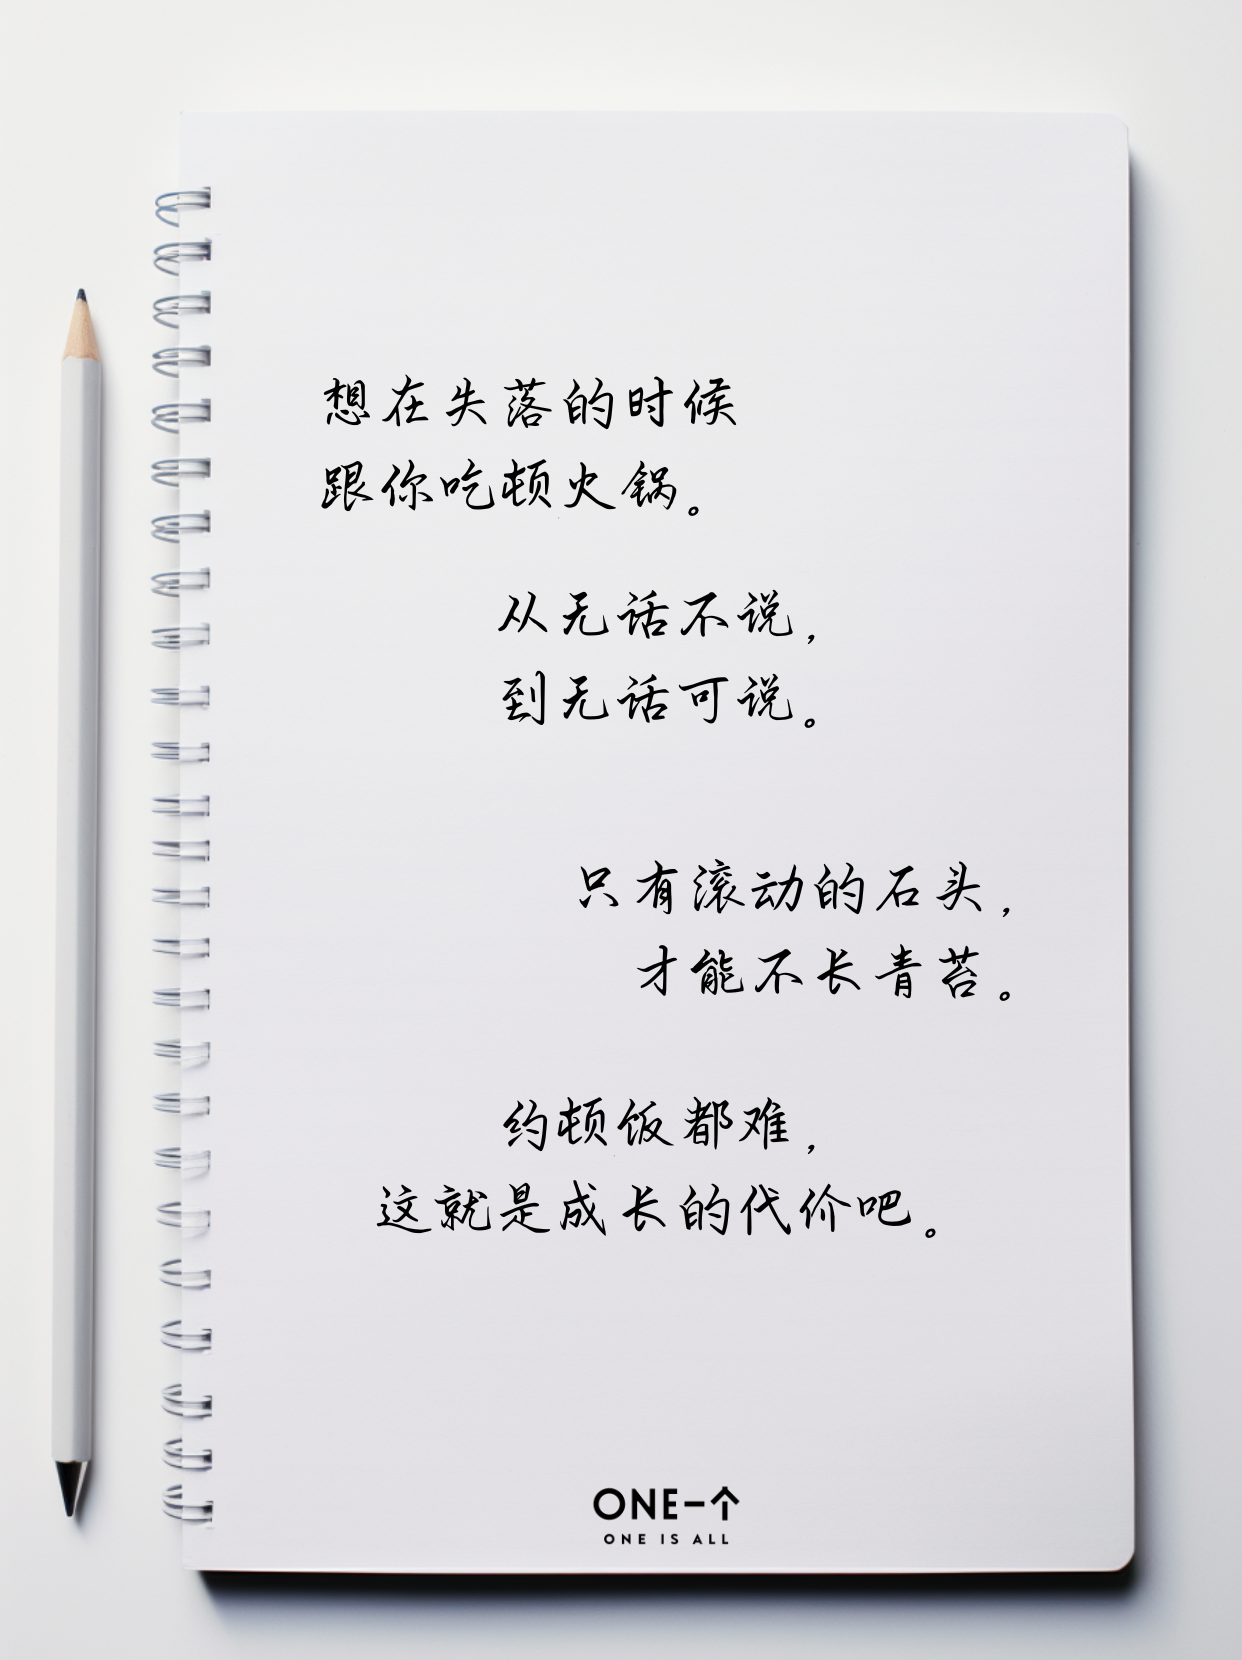 想在失落的时候
跟你吃顿火锅。
从无话不说，
到无话可说。
只有滚动的石头，
才能不长青苔。
约顿饭都难，
这就是成长的代价吧。
ONE一个
ONE IS ALL